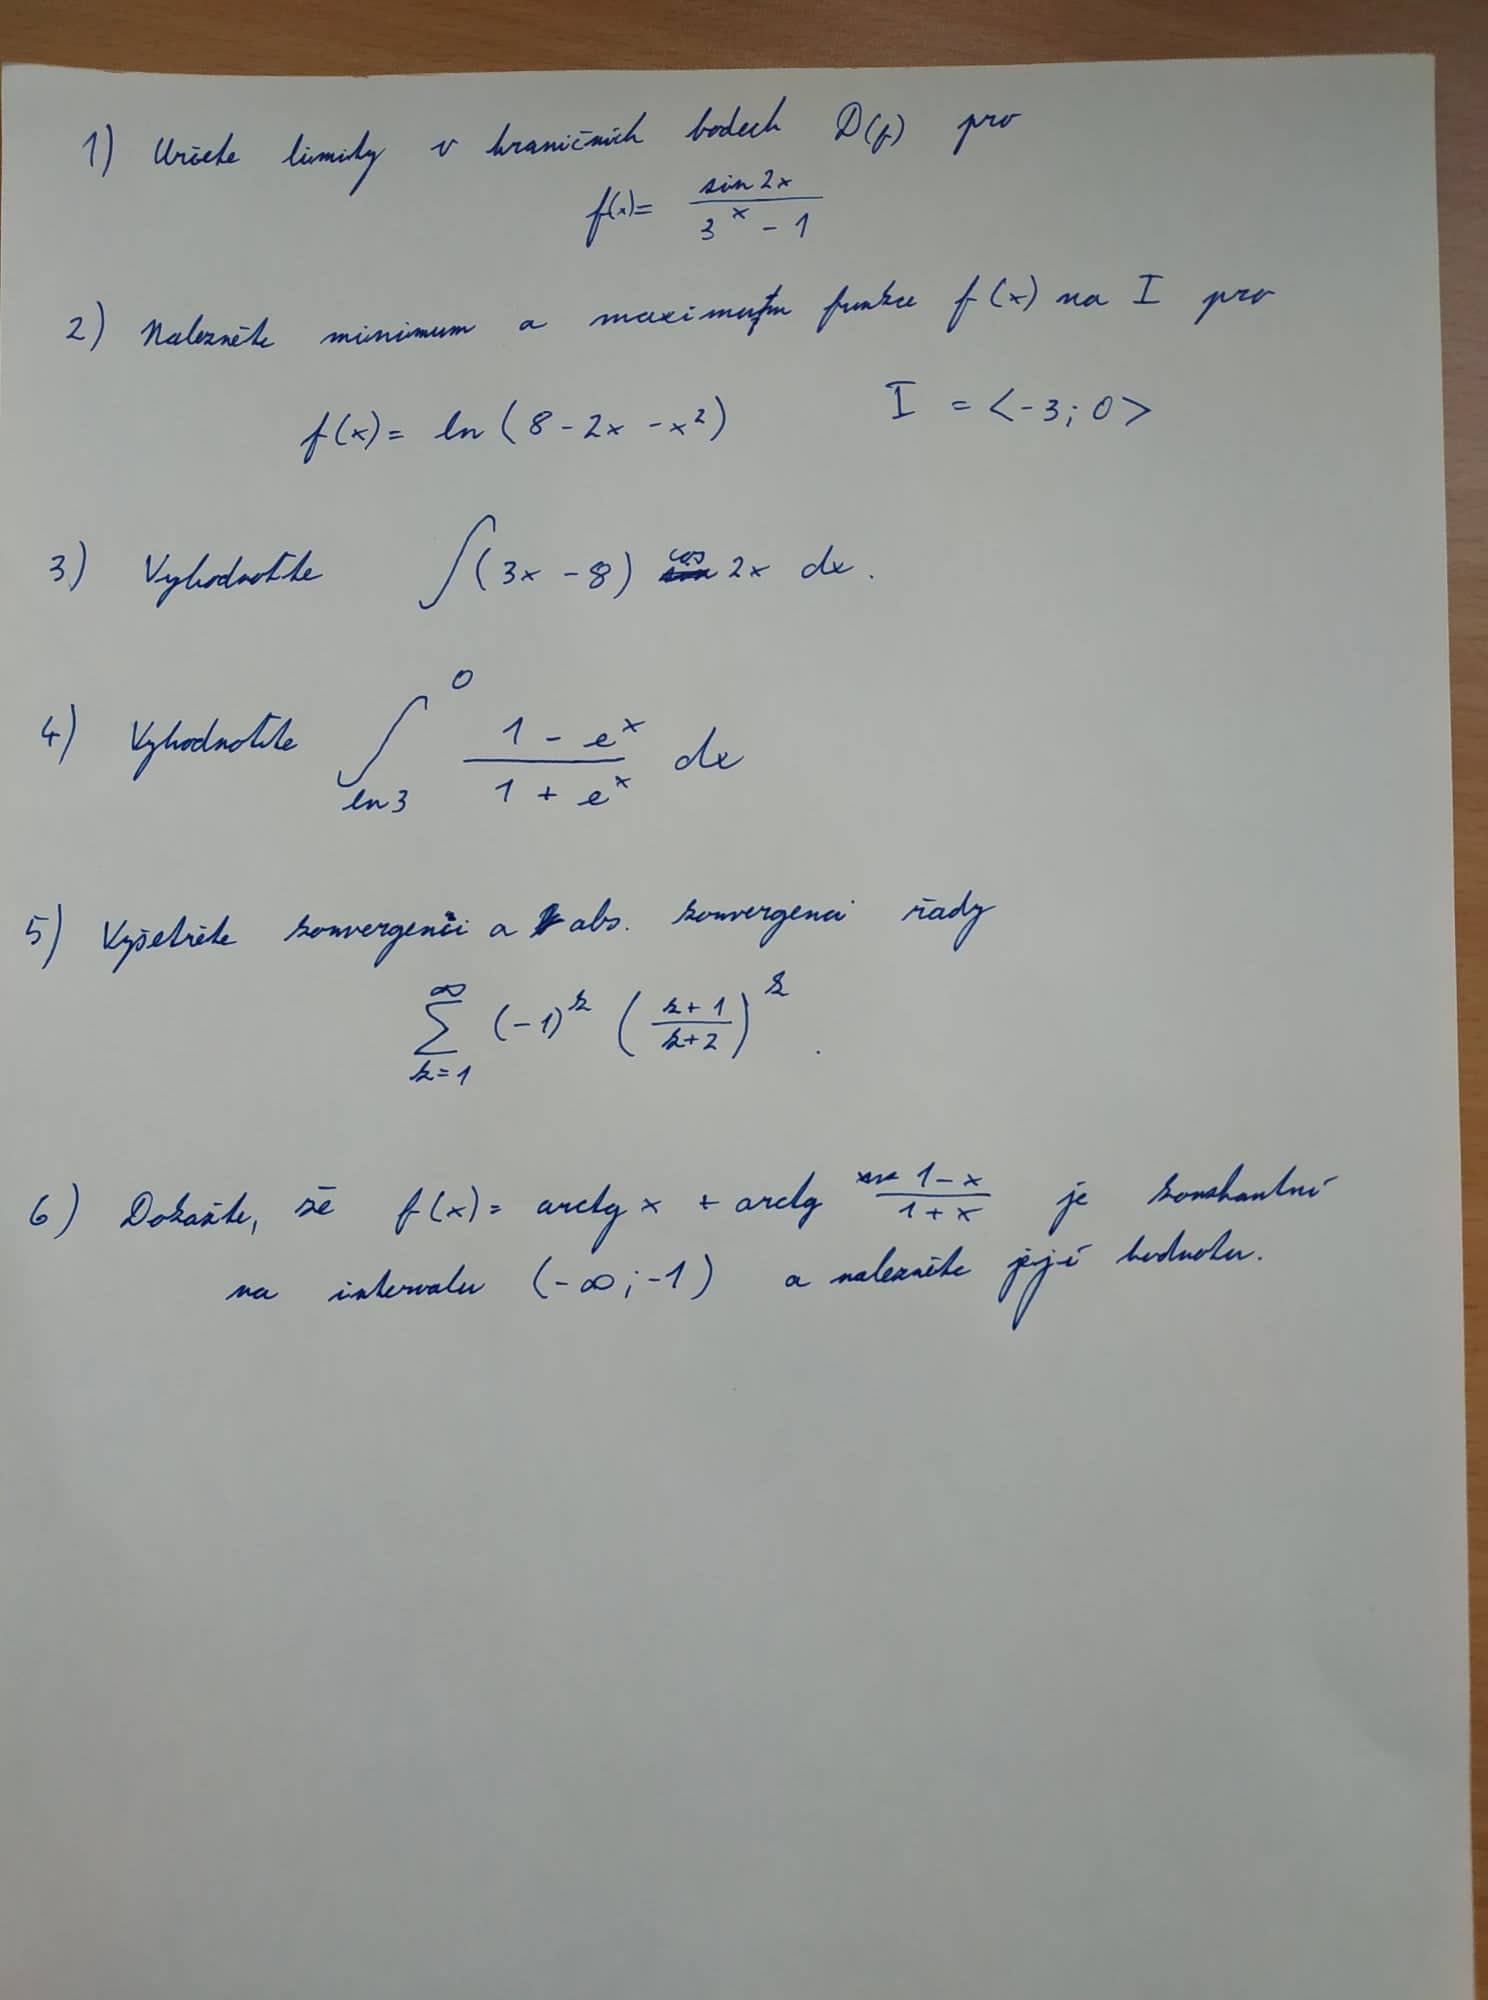 1) Určete limity v hraničních bodech D(f) pro
f(x) = sin 2x / 3^x - 1
2) Nalezněte minimum a maximum funkce f(x) na I pro
f(x) = ln (8 - 2x - x²) I = <-3; 0>
3) Vyhodnoťte ∫(3x - 8) cos 2x dx.
4) Vyhodnoťte ∫_{ln 3}^{0} (1 - e^x)/(1 + e^x) dx
5) Vyšetřete konvergenci a abs. konvergenci řady
∑_{k=1}^{∞} (-1)^k ((k+1)/(k+2))^k.
6) Dokažte, že f(x) = arctg x + arctg (1-x)/(1+x) je konstantní
na intervalu (-∞; -1) a nalezněte její hodnotu.